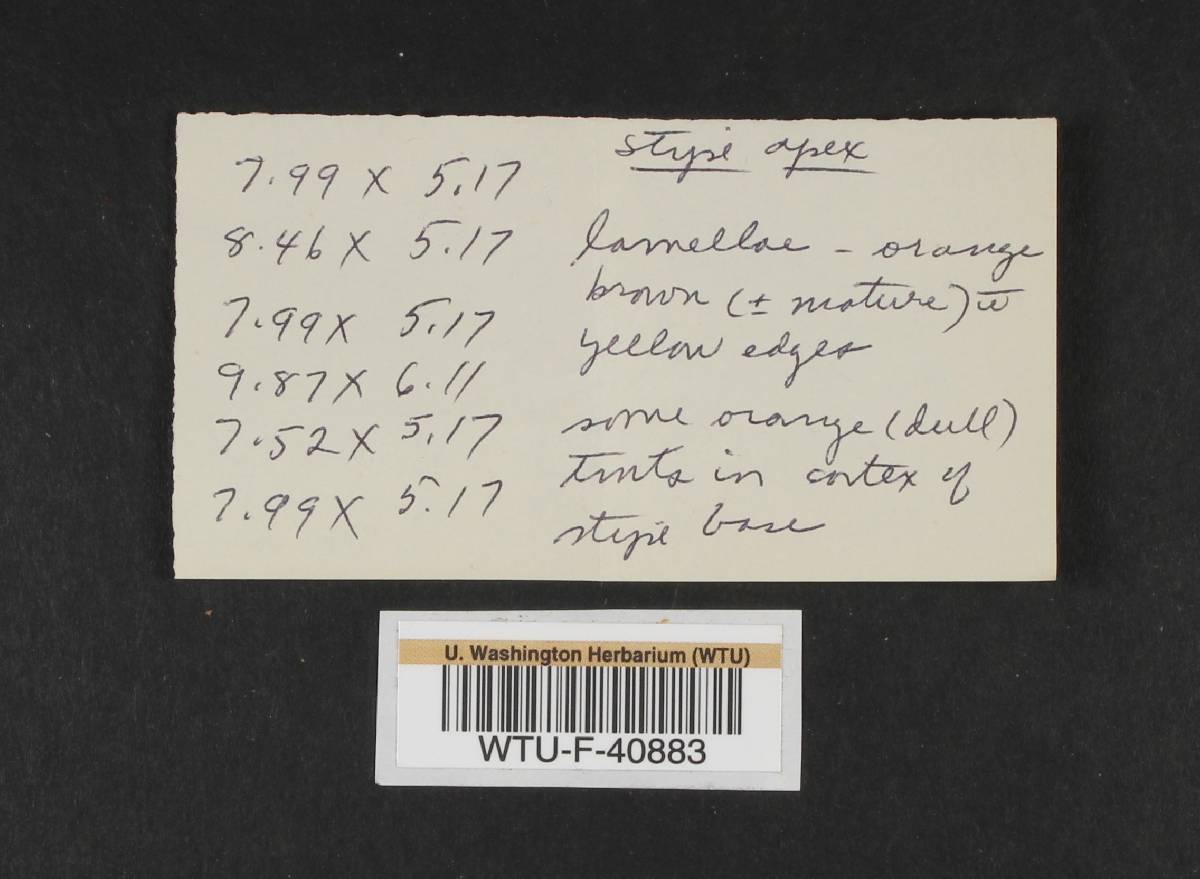 7.99 X 5.17
8.46 X 5.17
7.99 X 5.17
9.87 X 6.11
7.52 X 5.17
7.99 X 5.17
stipe apex
lamellae - orange
brown (± mature) w̄
yellow edges
some orange (dull)
tints in cortex of
stipe base
U. Washington Herbarium (WTU)
WTU-F-40883